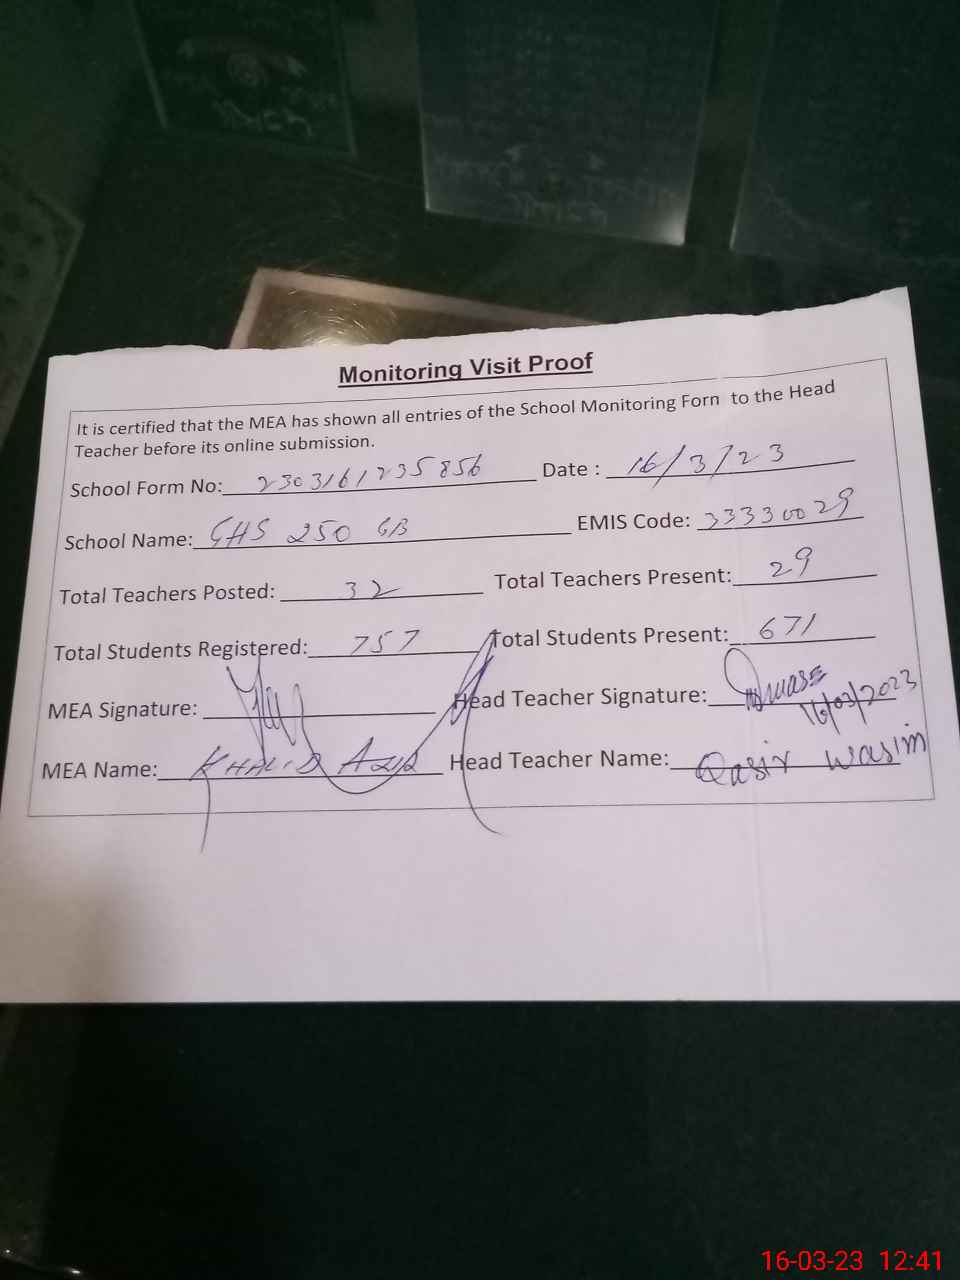 Monitoring Visit Proof
It is certified that the MEA has shown all entries of the School Monitoring Forn to the Head
Teacher before its online submission.
School Form No: 2303161235856 Date : 16/3/23
School Name: GHS 250 GB EMIS Code: 33330029
Total Teachers Posted: 32 Total Teachers Present: 29
Total Students Registered: 757 Total Students Present: 671
MEA Signature: Head Teacher Signature: 16/03/2023
MEA Name: KHALID AZIZ Head Teacher Name: Qasir Wasim
16-03-23 12:41